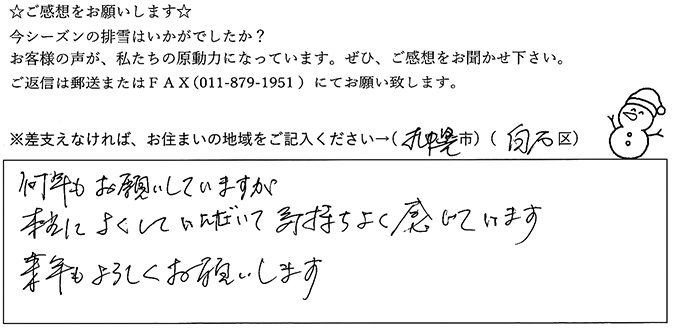 ☆ご感想をお願いします☆
今シーズンの排雪はいかがでしたか？
お客様の声が、私たちの原動力になっています。ぜひ、ご感想をお聞かせ下さい。
ご返信は郵送またはＦＡＸ（011-879-1951 ）にてお願い致します。
※差支えなければ、お住まいの地域をご記入ください→（ 札幌 市）（ 白石 区）
何年もお願いしていますが
本当によくしていただいて気持ちよく感じています
来年もよろしくお願いします